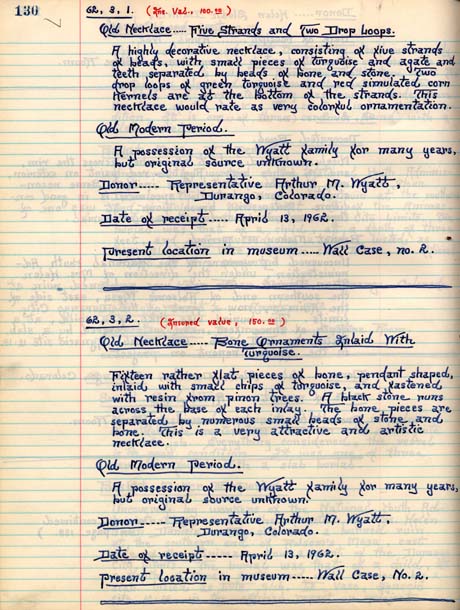 130
62, 3, 1. (Ins. Val., 100.00)
Old Necklace ..... Five Strands and Two Drop Loops.
A highly decorative necklace, consisting of five strands
of beads, with small pieces of turquoise and agate and
teeth separated by beads of bone and stone. Two
drop loops of green turquoise and red simulated corn
kernels are at the bottom of the strands. This
necklace would rate as very colorful ornamentation.
Old Modern Period.
A possession of the Wyatt family for many years,
but original source unknown.
Donor ..... Representative Arthur M. Wyatt,
Durango, Colorado.
Date of receipt ..... April 13, 1962.
Present location in museum ..... Wall Case, no. 2.
62, 3, 2. (Insured value, 150.00)
Old Necklace ..... Bone Ornaments Inlaid With
Turquoise.
Fifteen rather flat pieces of bone, pendant shaped,
inlaid with small chips of torquoise, and fastened
with resin from pinon trees. A black stone runs
across the base of each inlay. The bone pieces are
separated by numerous small beads of stone and
bone. This is a very attractive and artistic
necklace.
Old Modern Period.
A possession of the Wyatt family for many years,
but original source unknown.
Donor ..... Representative Arthur M. Wyatt,
Durango, Colorado.
Date of receipt ..... April 13, 1962.
Present location in museum ..... Wall Case, No. 2.